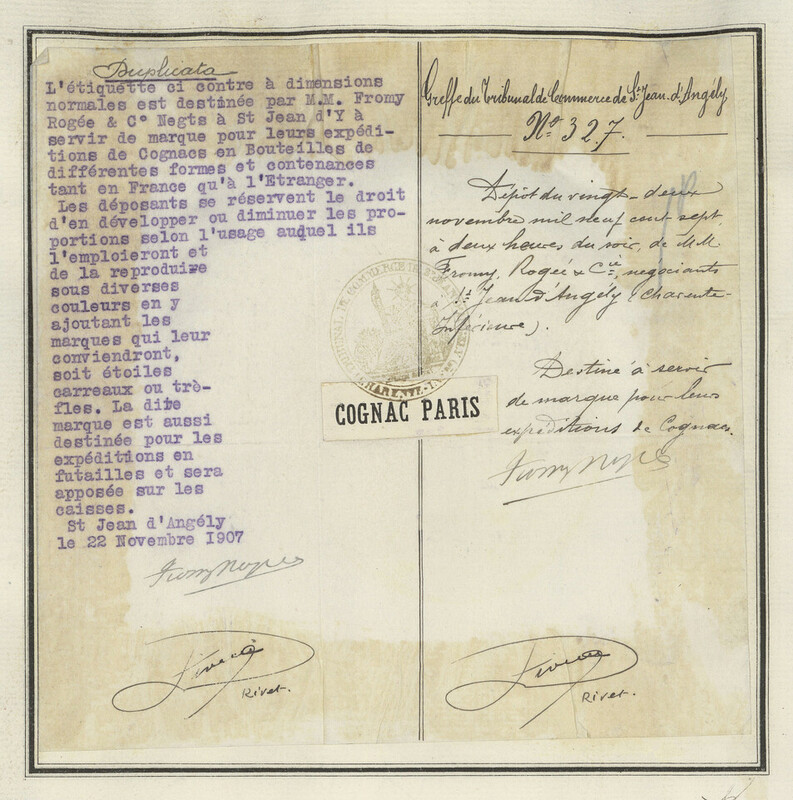 Duplicata
L'étiquette ci contre à dimensions
normales est destinée par M.M. Fromy
Rogée & C° Negts à St Jean d'Y à
servir de marque pour leurs expédi-
tions de Cognacs en Bouteilles de
différentes formes et contenances
tant en France qu'à l'Etranger.
Les déposants se réservent le droit
d'en développer ou diminuer les pro-
portions selon l'usage auquel ils
l'emploieront et
de la reproduire
sous diverses
couleurs en y
ajoutant les
marques qui leur
conviendront,
soit étoiles
carreaux ou trè-
fles. La dite
marque est aussi
destinée pour les
expéditions en
futailles et sera
apposée sur les
caisses.
St Jean d'Angély
le 22 Novembre I907
Fromy Rogée
Rivet.
COGNAC PARIS
Greffe du Tribunal de Commerce de St. Jean d'Angély
No. 327.
Dépôt du vingt-deux
novembre mil neuf cent sept,
à deux heures du soir, de M.M.
Fromy, Rogée & Cie, négociants
à St Jean d'Angély (Charente-
Inférieure).
Destiné à servir
de marque pour leurs
expéditions de Cognacs.
Fromy Rogée
Rivet.